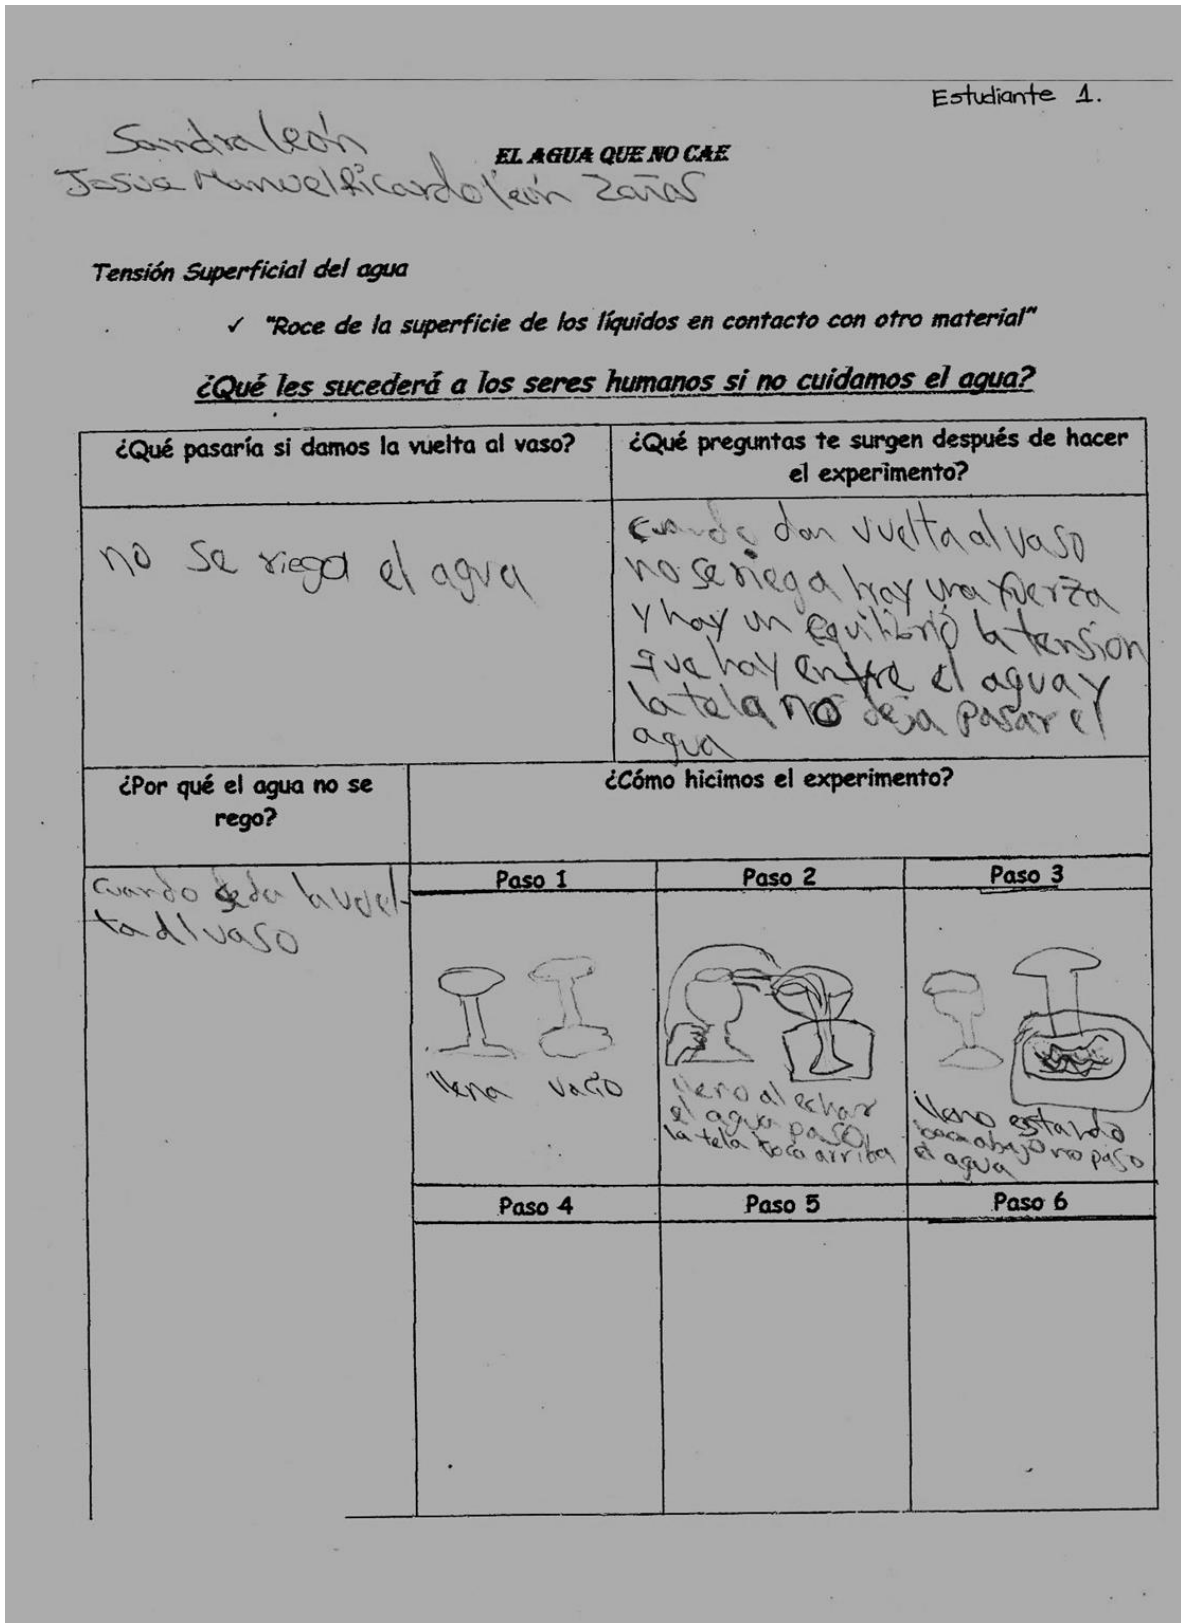 Estudiante 1.
Sandra león
EL AGUA QUE NO CAE
Josue Manuel Ricardo león Zañas
Tensión Superficial del agua
✓ "Roce de la superficie de los líquidos en contacto con otro material"
¿Qué les sucederá a los seres humanos si no cuidamos el agua?
¿Qué pasaría si damos la vuelta al vaso?
no se riega el agua
¿Qué preguntas te surgen después de hacer
el experimento?
cuando dan vuelta al vaso
no se riega hay una fuerza
y hay un equilibrio la tension
que hay entre el agua y
la tela no deja pasar el
agua
¿Por qué el agua no se
rego?
cuando se da la vuel-
ta al vaso
¿Cómo hicimos el experimento?
Paso 1
llena vacio
Paso 2
lleno al echar
el agua paso
la tela boca arriba
Paso 3
lleno estando
boca abajo no paso
el agua
Paso 4
Paso 5
Paso 6